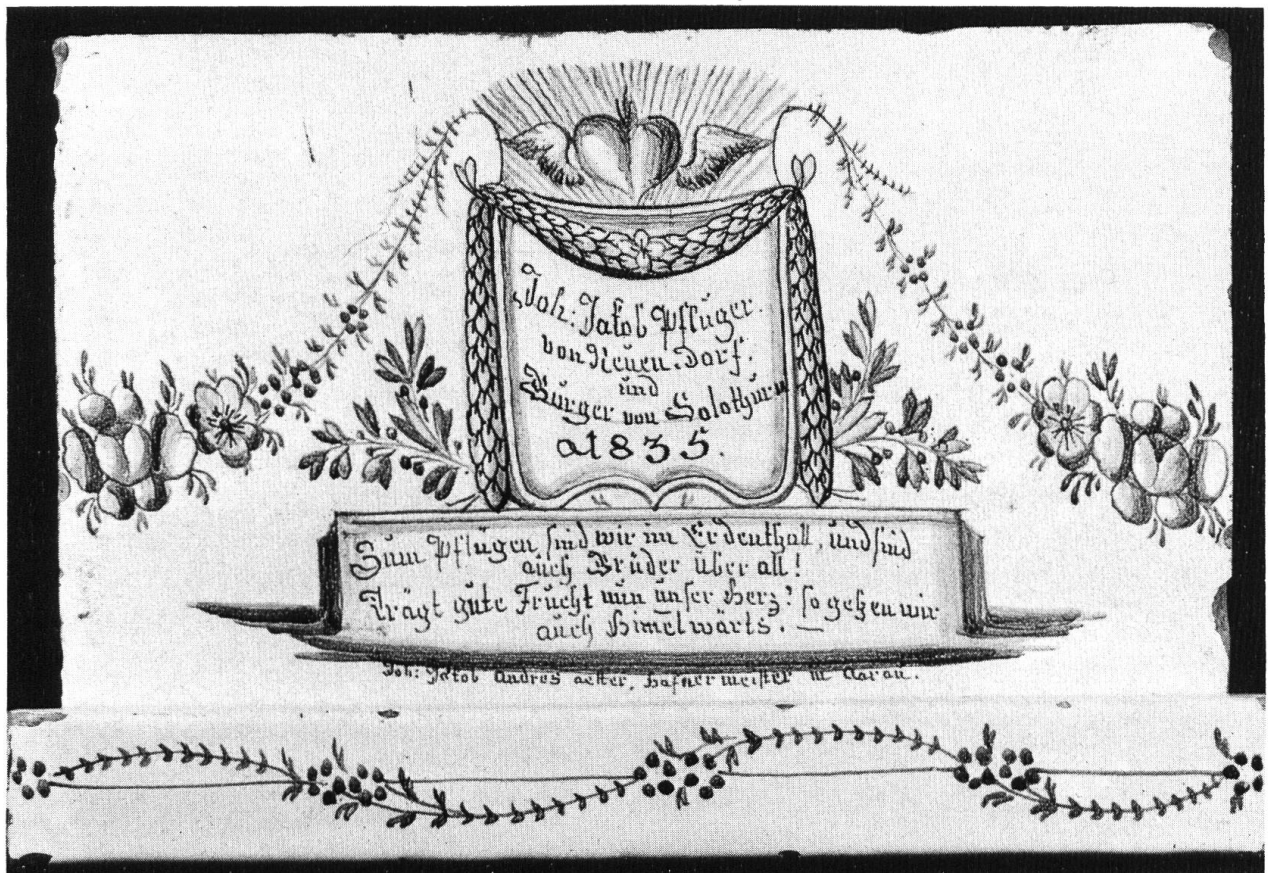 Joh: Jakob Pflüger.
von Neüen.dorf.
und
Bürger von Solothurn
a1835.
Zum Pflügen sind wir im Erdenthall, und sind
auch Brüder über all!
Trägt gute Frücht nun unser Herz? so gehen wir
auch Himelwärts. —
Joh: Jakob Andres aelter, Hafnermeister in Aarau.